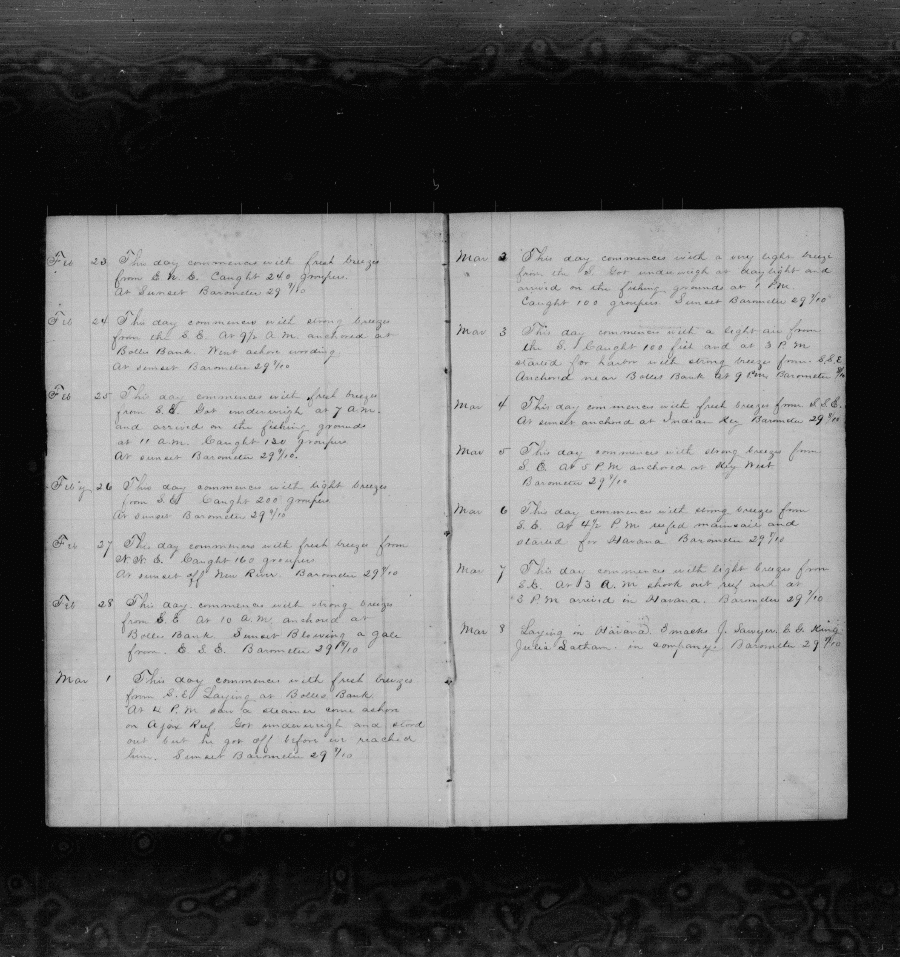 Feb 23 This day commences with fresh breezes
from E. N. E. Caught 240 groupers.
At Sunset Barometer 29 9/10
Feb 24 This day commences with strong breezes
from the S.E. At 9 1/2 A.M. anchored at
Bolles Bank. Went ashore wooding
At sunset Barometer 29 9/10
Feb 25 This day commences with fresh breezes
from S.E. Got underweigh at 7 A.M.
and arrived on the fishing grounds
at 11 A.M. Caught 130 groupers
At sunset Barometer 29 9/10.
Feb'y 26 This day commences with light breezes
from S.E. Caught 200 groupers
At sunset Barometer 29 9/10
Feb 27 This day commences with fresh breezes from
N.N.E. Caught 160 groupers
At sunset off New River. Barometer 29 9/10
Feb 28 This day commences with strong breezes
from S.E. At 10 A.M. anchored at
Bolles Bank Sunset Blowing a gale
from E.S.E. Barometer 29 9/10
Mar 1 This day commences with fresh breezes
from S.E. Laying at Bolles Bank
At 4 P.M saw a steamer come ashore
on Ajax Reef. Got underweigh and stood
out but he got off before we reached
him. Sunset Barometer 29 9/10
Mar 2 This day commences with a very light breeze
from the S. Got underweigh at daylight and
arrived on the fishing grounds at 1 P.M.
Caught 100 groupers Sunset Barometer 29 9/10
Mar 3 This day commences with a light air from
the E. Caught 100 fish and at 3 P.M
started for harbor with strong breezes from E.S.E.
Anchored near Bolles Bank at 9 P.M. Barometer 9/10
Mar 4 This day commences with fresh breezes from S.S.E.
At sunset anchored at Indian Key Barometer 29 9/10
Mar 5 This day commences with strong breezes from
S.E. At 5 P.M anchored at Key West
Barometer 29 9/10
Mar 6 This day commences with strong breezes from
S.E. At 4 1/2 P.M reefed mainsail and
started for Havana Barometer 29 9/10
Mar 7 This day commences with light breezes from
S.E. At 3 A.M shook out reef and at
3 P.M arrived in Havana. Barometer 29 9/10
Mar 8 Laying in Havana Smacks J. Sawyer. E.G. King
Julia Latham. in company. Barometer 29 9/10